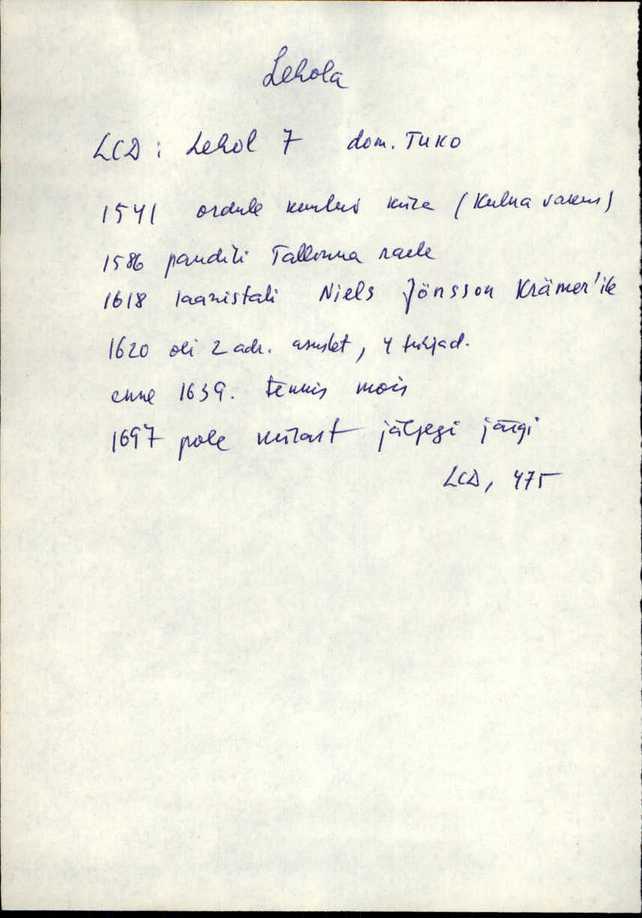 Lehola
LCD: Lehol 7 dom. Tuko
1541 ordule kuuluv küla (Kulna vakus)
1586 panditi Tallinna raele
1618 läänistati Niels Jönsson Krämer'ile
1620 oli 2 adr. asulat, 4 tühjad.
enne 1639. tekkis mõis
1697 pole külast jälgegi järgi
LCD, 475